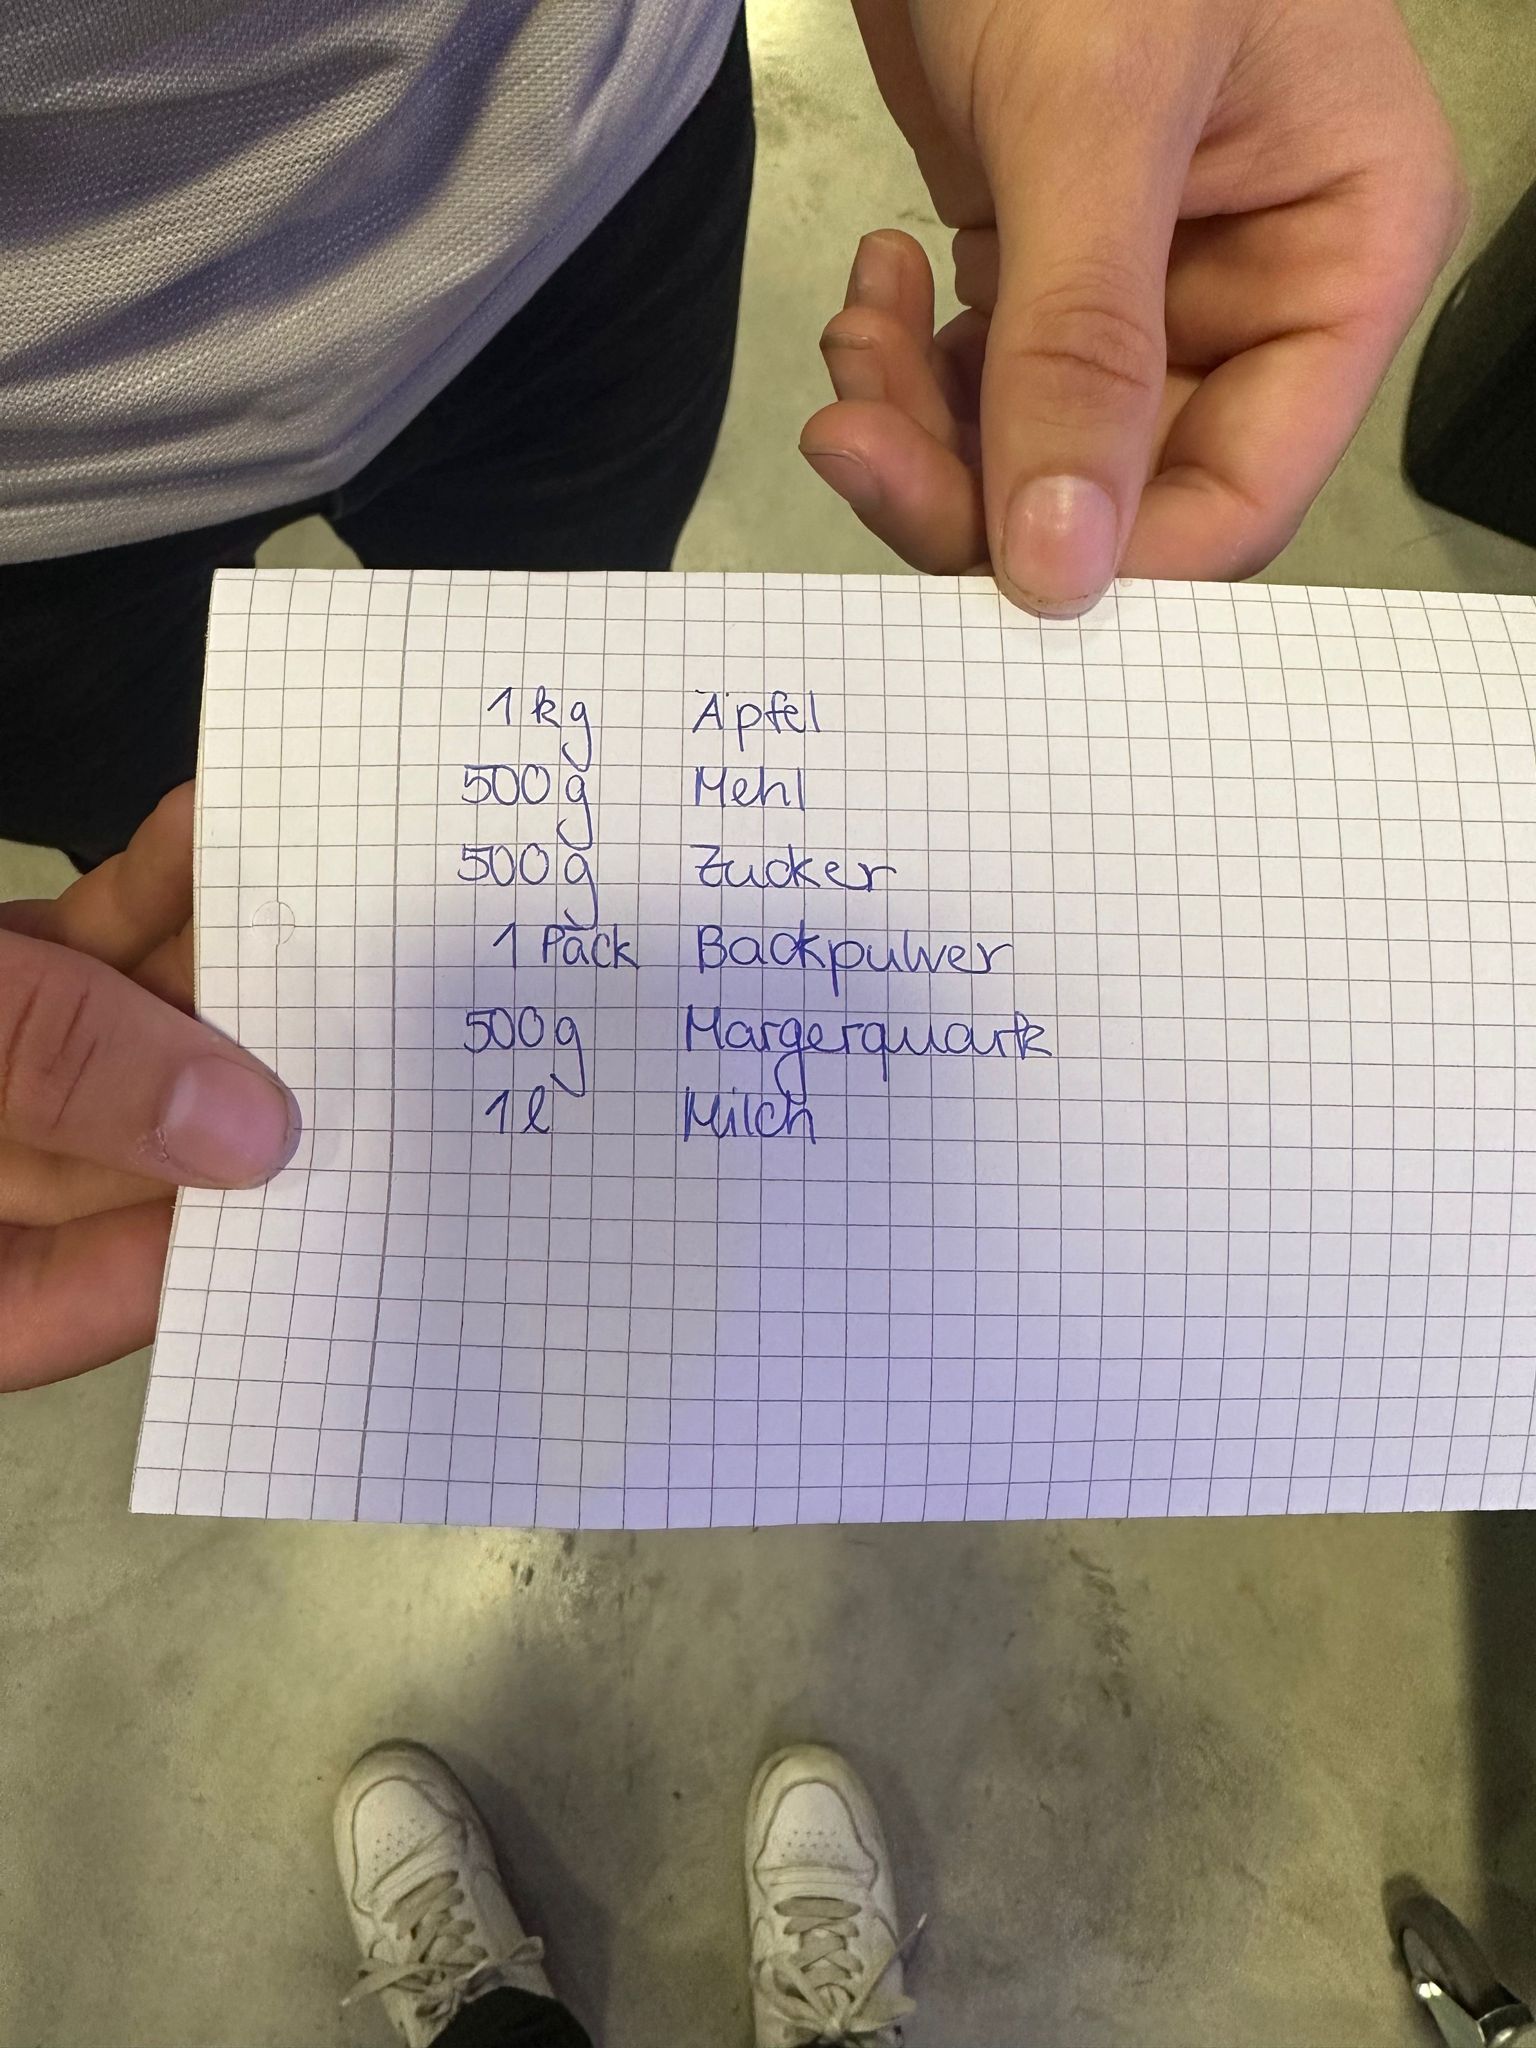 1 kg Äpfel
500 g Mehl
500 g Zucker
1 Päck Backpulver
500 g Margerquark
1 l Milch